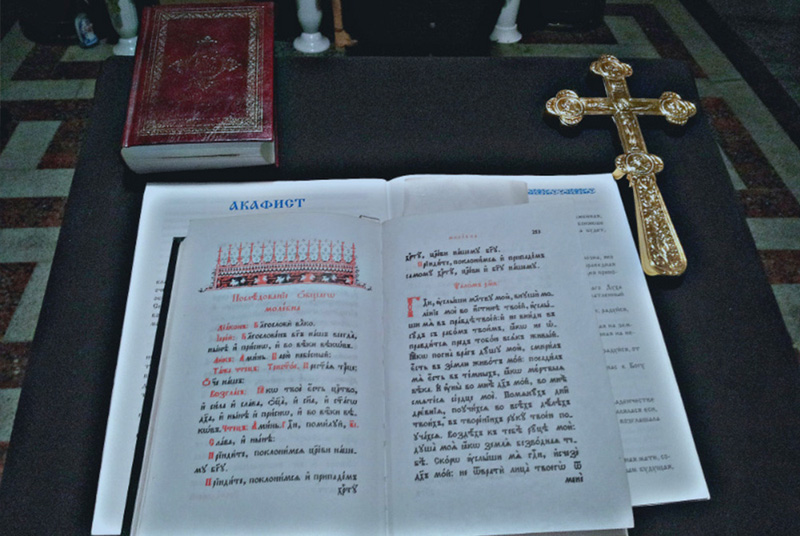 АКАФИСТ
Послѣдованїе ѻбщагѡ
молебна
Дїаконъ: Благослови влⷣко.
Їерей: Благословенъ бг҃ъ нашъ всегда,
нынѣ и присно, и во вѣки вѣкѡвъ.
Ликъ: Аминь. Царю небесный:
Таже чтецъ: Трист҃ое. Прест҃ая трⷪ҇це:
Ѻ҃че нашъ:
Возгласъ: Ꙗкѡ твое есть царство,
и сила и слава, ѻ҃ца, и сн҃а, и ст҃агѡ
дх҃а, и нынѣ и присно, и во вѣки вѣ-
кѡвъ. Чтецъ: Аминь. Гдⷭ҇и, помилуй, в҃і.
Слава, и нынѣ:
Прїидите, поклонимсѧ цр҃еви наше-
му бг҃у.
Прїидите, поклонимсѧ и припадемъ
хрⷭ҇ту
хрⷭ҇ту, цр҃еви нашему бг҃у.
Прїидите, поклонимсѧ и припадемъ
самому хрⷭ҇ту, цр҃еви и бг҃у нашему.
Ѱаломъ рм҃в.
Гдⷭ҇и, услыши молитву мою, внуши мо-
ленїе мое во истинѣ твоей, услы-
ши мѧ въ правдѣ твоей: и не вниди въ
судъ съ рабомъ твоимъ, ꙗкѡ не ѡ-
правдитсѧ предъ тобою всѧкъ живый.
Ꙗкѡ погна врагъ душу мою, смирилъ
есть въ землю животъ мой: посадилъ
мѧ есть въ темныхъ, ꙗкѡ мертвыѧ
вѣка. И уны во мнѣ дх҃ъ мой, во мнѣ
смѧтесѧ сердце мое. Помѧнухъ дни
древнїѧ, поучихсѧ во всѣхъ дѣлѣхъ
твоихъ, въ творенїихъ руку твоею по-
учахсѧ. Воздѣхъ къ тебѣ руцѣ мои:
душа моѧ ꙗкѡ землѧ безводнаѧ те-
бѣ. Скорѡ услыши мѧ гдⷭ҇и, исчезе
дх҃ъ мой: не ѿврати лица твоегѡ ѿ
мене